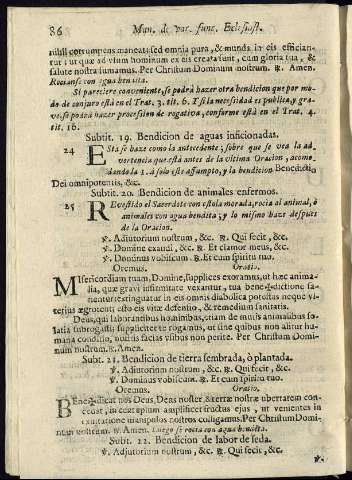 86 Man. de var. func. Eclesiast.
nihil corrumpens maneat: sed omnia pura, & munda in eis effician-
tur: ut quæ ad usum hominum ex eis creata sunt, cum gloria tua, &
salute nostra sumamus. Per Christum Dominum nostrum. ℟. Amen.
Rocianse con agua bendita.
Si pareciere conveniente, se podrà hazer otra bendicion que por mo-
do de conjuro està en el Trat. 3. tit. 6. Y si la necessidad es publica, y gra-
ve, se podrà hazer procession de rogativa, conforme està en el Trat. 4.
tit. 16.
Subtit. 19. Bendicion de aguas inficionadas.
24 Esta se haze como la antecedente; sobre que se vea la ad-
vertencia que està antes de la vltima Oracion, acomo-
dando la 1. à solo este assumpto, y la bendicion Benedictio
Dei omnipotentis, &c.
Subtit. 20. Bendicion de animales enfermos.
25 Revestido el Sacerdote con estola morada, rocia al animal, ò
animales con agua bendita; y lo mismo haze despues
de la Oracion.
℣. Adjutorium nostrum, &c. ℟. Qui fecit, &c.
℣. Domine exaudi, &c. ℟. Et clamor meus, &c.
℣. Dominus vobiscum. ℟. Et cum spiritu tuo.
Oremus. Oratio.
Misericordiam tuam, Domine, supplices exoramus, ut hæc anima-
lia, quæ gravi infirmitate vexantur, tua bene✠dictione sa-
nentur: extinguatur in eis omnis diabolica potestas neque vl-
terius ægrotent: esto eis vitæ defensio, & remedium sanitatis.
Deus, qui laborantibus hominibus, etiam de mutis animalibus so-
latia subrogasti: suppliciter te rogamus, ut sine quibus non alitur hu-
mana conditio, nostris facias usibus non perire. Per Christum Domi-
num nostrum. ℟. Amen.
Subt. 21. Bendicion de tierra sembrada, ò plantada.
℣. Adjutorium nostrum, &c. ℟. Qui fecit, &c.
℣. Dominus vobiscum. ℟. Et cum spiritu tuo.
Oremus. Oratio.
Bene✠dicat nos Deus, Deus noster, & terræ nostræ ubertatem con-
cedat, in ea triplum amplificet fructus ejus, ut venientes in
exultatione manipulos nostros colligamus. Per Christum Domi-
num nostrum. ℟. Amen. Luego se rocia con agua bendita.
Subt. 22. Bendicion de labor de seda.
℣. Adjutorium nostrum, &c. ℟. Qui fecit, &c.
℣.